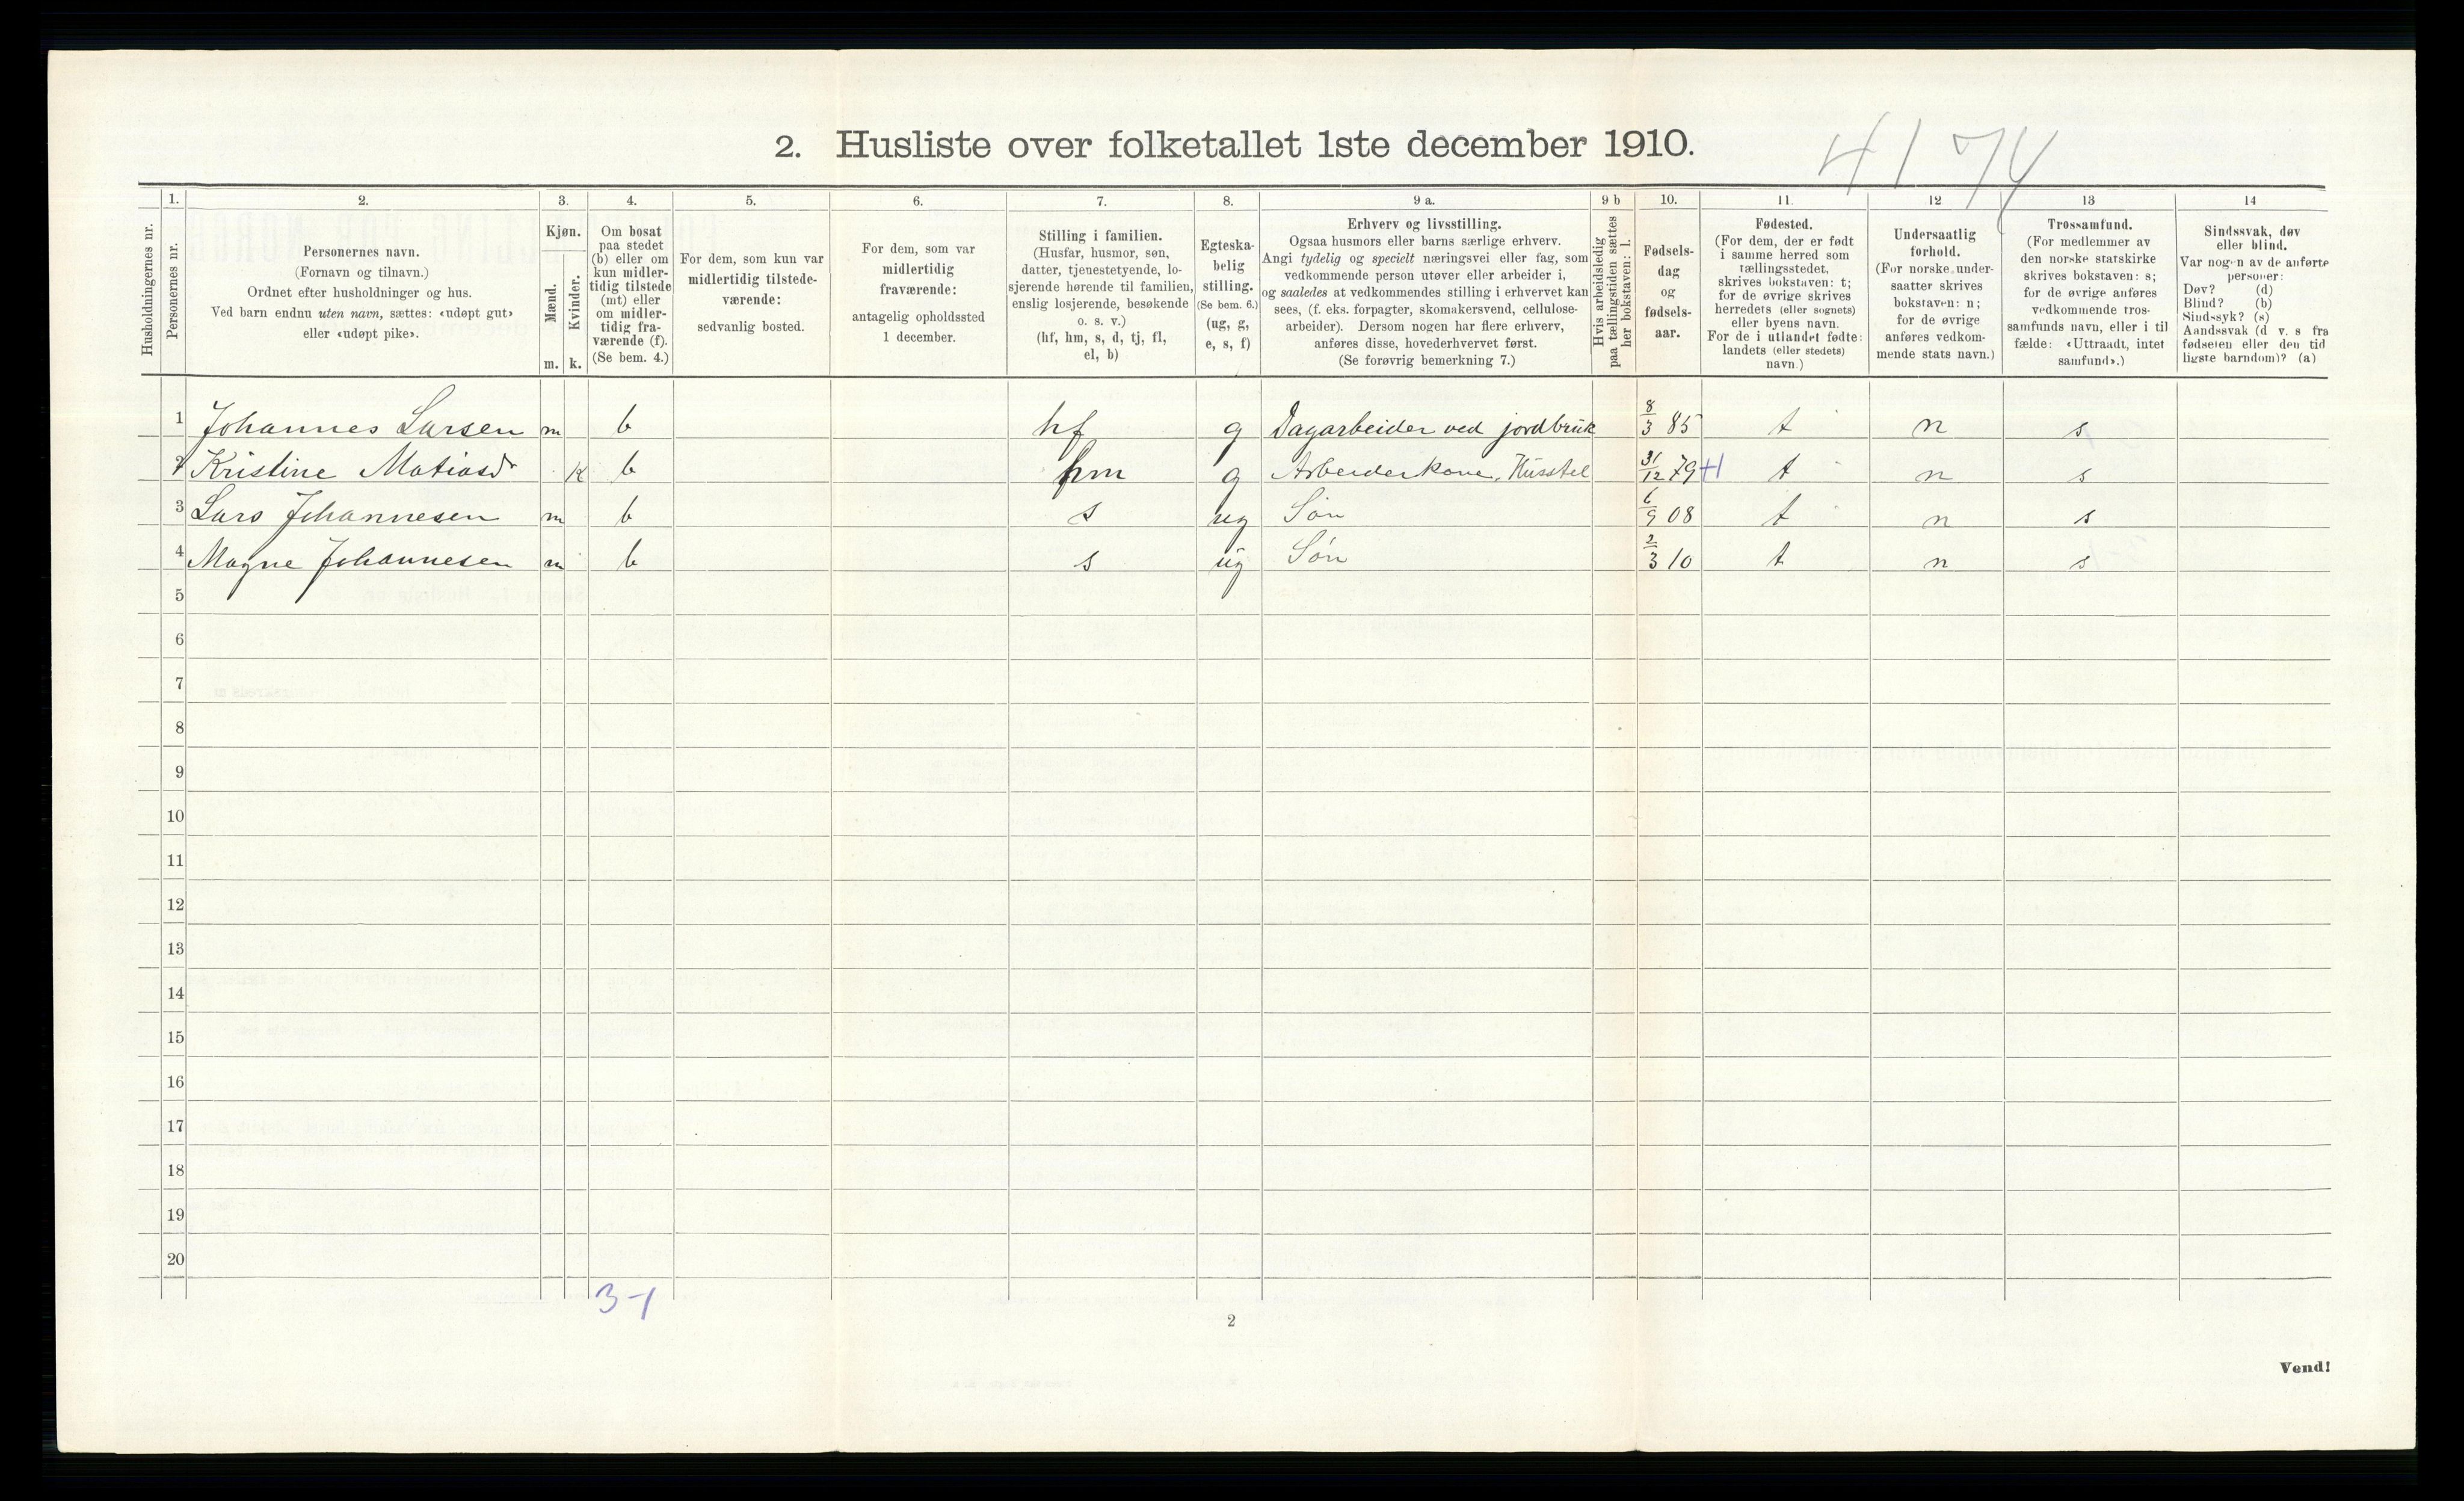 2. Husliste over folketallet 1ste december 1910.
4174
Husholdningernes nr.
1.
Personernes nr.
2.
Personernes navn.
(Fornavn og tilnavn.)
Ordnet efter husholdninger og hus.
Ved barn endnu uten navn, sættes: «udøpt gut»
eller «udøpt pike».
3.
Kjøn.
Mænd.
Kvinder.
m. k.
4.
Om bosat
paa stedet
(b) eller om
kun midler-
tidig tilstede
(mt) eller
om midler-
tidig fra-
værende (f).
(Se bem. 4.)
5.
For dem, som kun var
midlertidig tilstede-
værende:
sedvanlig bosted.
6.
For dem, som var
midlertidig
fraværende:
antagelig opholdssted
1 december.
7.
Stilling i familien.
(Husfar, husmor, søn,
datter, tjenestetyende, lo-
sjerende hørende til familien,
enslig losjerende, besøkende
o. s. v.)
(hf, hm, s, d, tj, fl,
el, b)
8.
Egteska-
belig
stilling.
(Se bem. 6.)
(ug, g,
e, s, f)
9 a.
Erhverv og livsstilling.
Ogsaa husmors eller barns særlige erhverv.
Angi tydelig og specielt næringsvei eller fag, som
vedkommende person utøver eller arbeider i,
og saaledes at vedkommendes stilling i erhvervet kan
sees, (f. eks. forpagter, skomakersvend, cellulose-
arbeider). Dersom nogen har flere erhverv,
anføres disse, hovederhvervet først.
(Se forøvrig bemerkning 7.)
9 b
Hvis arbeidsledig
paa tællingstiden sættes
her bokstaven: l.
10.
Fødsels-
dag
og
fødsels-
aar.
11.
Fødested.
(For dem, der er født
i samme herred som
tællingsstedet,
skrives bokstaven: t;
for de øvrige skrives
herredets (eller sognets)
eller byens navn.
For de i utlandet fødte:
landets (eller stedets)
navn.)
12
Undersaatlig
forhold.
(For norske under-
saatter skrives
bokstaven: n;
for de øvrige
anføres vedkom-
mende stats navn.)
13
Trossamfund.
(For medlemmer av
den norske statskirke
skrives bokstaven: s;
for de øvrige anføres
vedkommende tros-
samfunds navn, eller i til
fælde: «Uttraadt, intet
samfund».)
14
Sindssvak, døv
eller blind.
Var nogen av de anførte
personer:
Døv? (d)
Blind? (b)
Sindssyk? (s)
Aandssvak (d v. s fra
fødselen eller den tid
ligste barndom)? (a)
1 Johannes Larsen m b hf g Dagarbeider ved jordbruk 8/3 85 t n s
2 Kristine Matiasdr k b hm g Arbeiderkone, Husstel 31/12 79 +1 t n s
3 Lars Johannesen m b s ug Søn 6/9 08 t n s
4 Magne Johannesen m b s ug Søn 2/3 10 t n s
5
6
7
8
9
10
11
12
13
14
15
16
17
18
19
20
3-1
2
Vend!